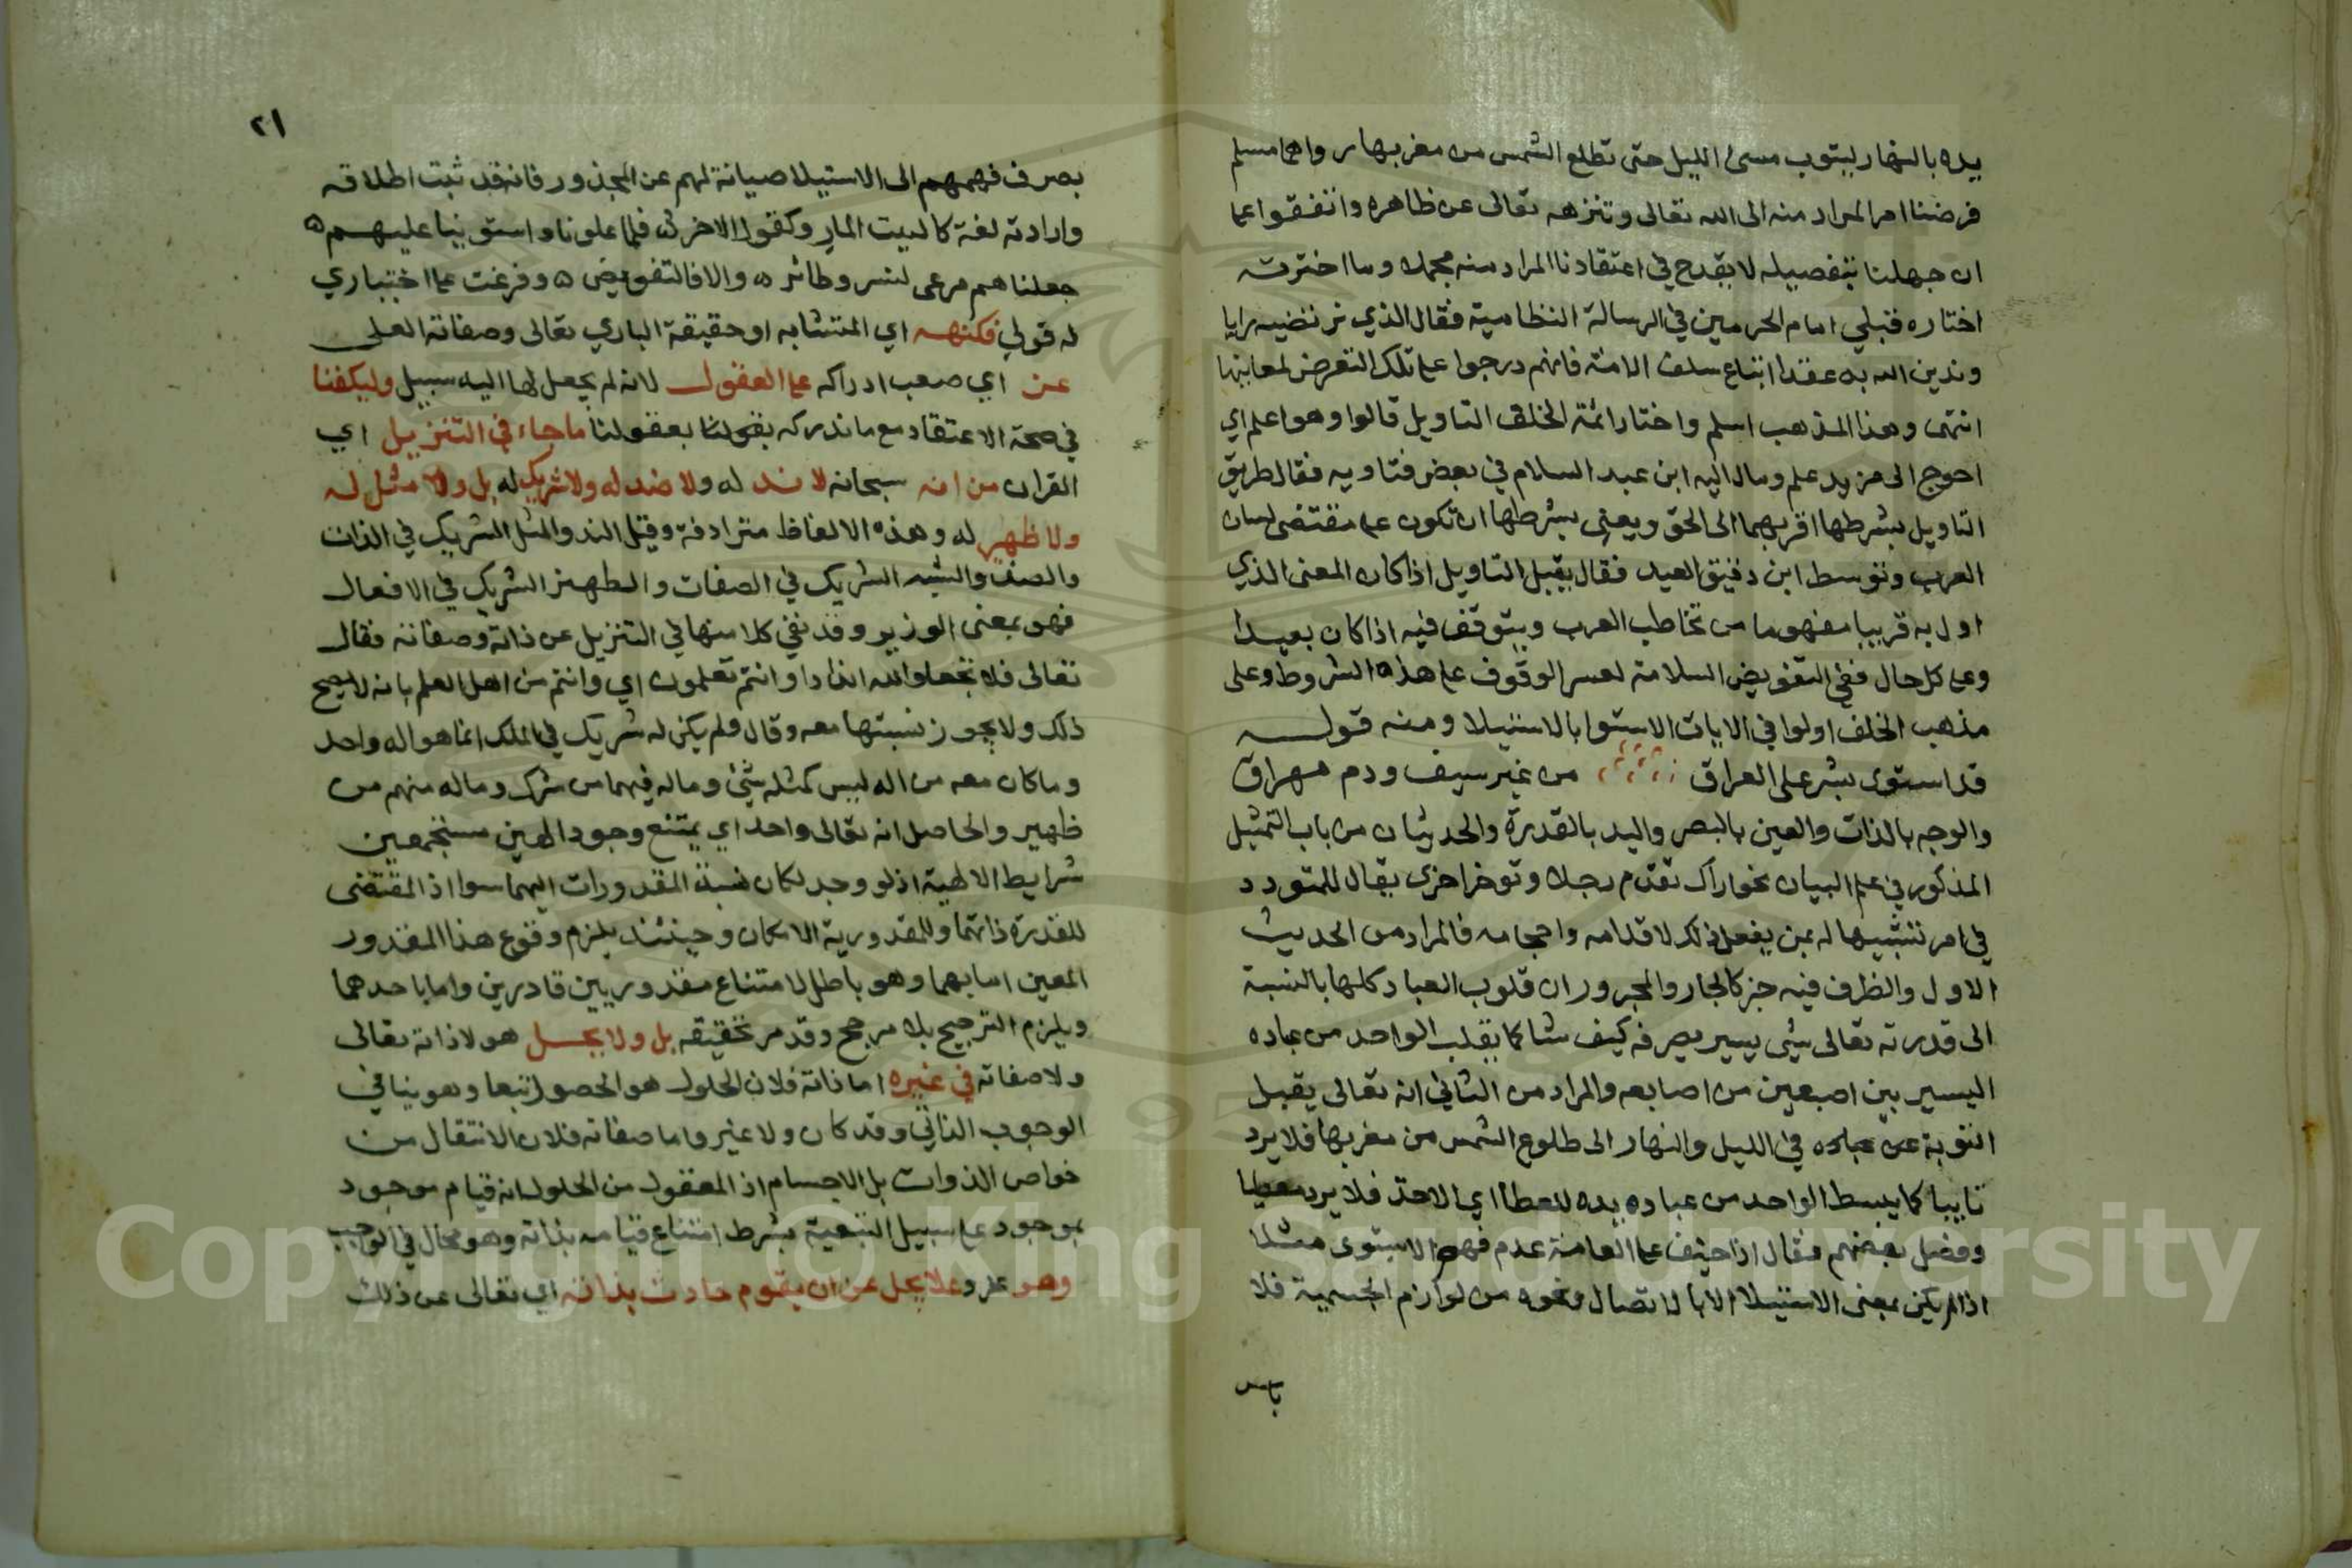 يده بالنهار ليتوب مسئ الليل حتى تطلع الشمس من مغربها رواهما مسلم
فوضنا امر المراد منه الى الله تعالى وتنزهه تعالى عن ظاهره واتفقوا على
ان جهلنا بتفصيله لا يقدح في اعتقادنا المراد منه مجملا وما اخترته
اختاره قبلي امام الحرمين في الرسالة النظامية فقال الذي نرتضيه رايا
وندين الله به عقدا اتباع سلف الامة فانهم درجوا على تلك التعرض لمعانيها
انتهى وهذا المذهب اسلم واختار ائمة الخلف التاويل قالوا وهو اعلم اي
احوج الى مزيد علم ومال اليه ابن عبد السلام في بعض فتاويه فقال طريق
التاويل بشرطها اقربهما الى الحق ويعنى بشرطها ان تكون على مقتضى لسان
العرب وتوسط ابن دقيق العيد فقال يقبل التاويل اذا كان المعنى الذي
اول به قريبا مفهوما من تخاطب العرب ويتوقف فيه اذا كان بعيدا
وعلى كل حال ففي التفويض السلامة لعسر الوقوف على هذه الشروط وعلى
مذهب الخلف اولوا في الايات الاستوا بالاستيلا ومنه قوله
قد استوى بشر على العراق من غير سيف ودم مهراق
والوجه بالذات والعين بالبصر واليد بالقدرة والحديثان من باب التمثيل
المذكور في علم البيان نحو اراك تقدم رجلا وتوخر اخرى يقال للمتردد
في امر تشبيها له بمن يفعل ذلك لاقدامه واحجامه فالمراد من الحديث
الاول والظرف فيه خبر كالجار والمجرور ان قلوب العباد كلها بالنسبة
الى قدرته تعالى شئ يسير يصرفه كيف شا كما يقلب الواحد من عباده
اليسير بين اصبعين من اصابعه والمراد من الثاني انه تعالى يقبل
التوبة عن عباده في الليل والنهار الى طلوع الشمس من مغربها فلا يرد
تايبا كما يبسط الواحد من عباده يده للعطا اي الاخذ فلا يرد معطيا
وفصل بعضهم فقال اذا خيف على العامة عدم فهم الاستوى مثلا
اذا لم يكن بمعنى الاستيلا الا بالاتصال ونحوه من لوازم الجسمية فلا
باس
٢١
بصرف فهمهم الى الاستيلا صيانة لهم عن المحذور فانه قد ثبت اطلاقه
وارادته لغة كالبيت المار وكقول الاخر ٥ فلما علونا واستوينا عليهم ٥
جعلناهم مرعى لنسر وطائر ٥ والا فالتفويض ٥ وفرغت على اختياري
له قولي فكنهه اي المتشابه او حقيقة الباري تعالى وصفاته العلى
عن اي صعب ادراكه على العقول لانه لم يجعل لها اليه سبيل وليكفنا
في صحة الاعتقاد مع ما ندركه بعقولنا ما جاء في التنزيل اي
القران من انه سبحانه لا ند له ولا ضد له ولا شريك له بل ولا مثل له
ولا ظهير له وهذه الالفاظ مترادفة وقيل الند والمثل الشريك في الذات
والضد والشبه الشريك في الصفات والظهير الشريك في الافعال
فهو بمعنى الوزير وقد نفي كلا منها في التنزيل عن ذاته وصفاته فقال
تعالى فلا تجعلوا لله اندادا وانتم تعلمون اي وانتم من اهل العلم بانه لا يصح
ذلك ولا يجوز نسبتها معه وقال ولم يكن له شريك في الملك انما هو اله واحد
وما كان معه من اله ليس كمثله شئ وما له فيهما من شرك وما له منهم من
ظهير والحاصل انه تعالى واحد اي يمتنع وجود الهين مستجمعين
شرايط الالهية اذ لو وجد لكان نسبة المقدورات اليهما سوا اذ المقتضى
للقدرة ذاتهما وللمقدورية الامكان وحينئذ يلزم وقوع هذا المقدور
المعين اما بهما وهو باطل لامتناع مقدور بين قادرين واما باحدهما
ويلزم الترجيح بلا مرجح وقد مر تحقيقه بل ولا يحل هو لا ذاته تعالى
ولا صفاته في غيره اما ذاته فلان الحلول هو الحصول تبعا وهو ينافي
الوجوب الذاتي وقد كان ولا غير واما صفاته فلان الانتقال من
خواص الذوات بل الاجسام اذ المعقول من الحلول انه قيام موجود
بموجود على سبيل التبعية بشرط امتناع قيامه بذاته وهو محال في الواجب
وهو عز وعلا يجل عن ان يقوم حادث بذاته اي تعالى عن ذلك
Copyright © King Saud University